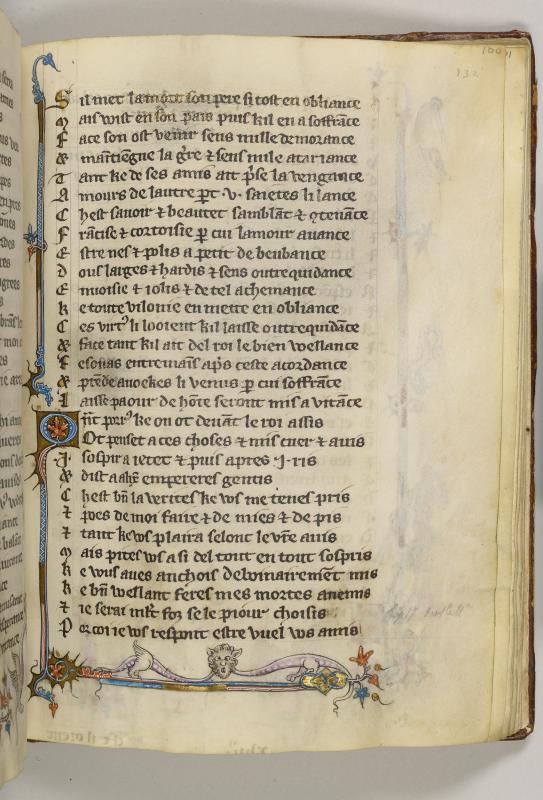 100
132
S il met la mort son pere si tost en obliance
M ais voist en son pais puis kil en a soffrance
F ace son ost venir sens nulle demorance
& maintiengne la gre & sens nule atariance
T ant ke de ses amis ait pse la vengance
A mours de lautre pt .v. saietes li lance
C hest sauoir & beautet samblant & gtenance
F rancise & cortoisie p cui lamour auance
E stre nes & polis a petit de beubance
D ous larges & hardis & sens outrequidance
E nuoisie & iolis & de tel achemance
K e toute vilonie en mette en obliance
C es virt⁹ li looient kil laisse outrequidance
& face tant kil ait del roi le bien wellance
E t
& prede auoekes li venus p cui soffrance
L aisse paour de honte seront mis a vitance
Q nt porr⁹ ke on ot deuant le roi assis
O t penset a ces choses & mis cuer & auis
J. sospir a ietet & puis apres .J. ris
& dist a emperers gentis
C hest bn la verites ke ws me tenes pris
& poes de moi faire & de mies & de pis
& tant ke ws plaira selonc le vre auis
M ais pites ws a si del tout en tout sospris
K e wus aues anchois debonairement mis
K e bn wellant feres mes mortes anemis
& ie serai mlt foz se le piour choisis
P orcoi ie ws respont estre vuel ws amis